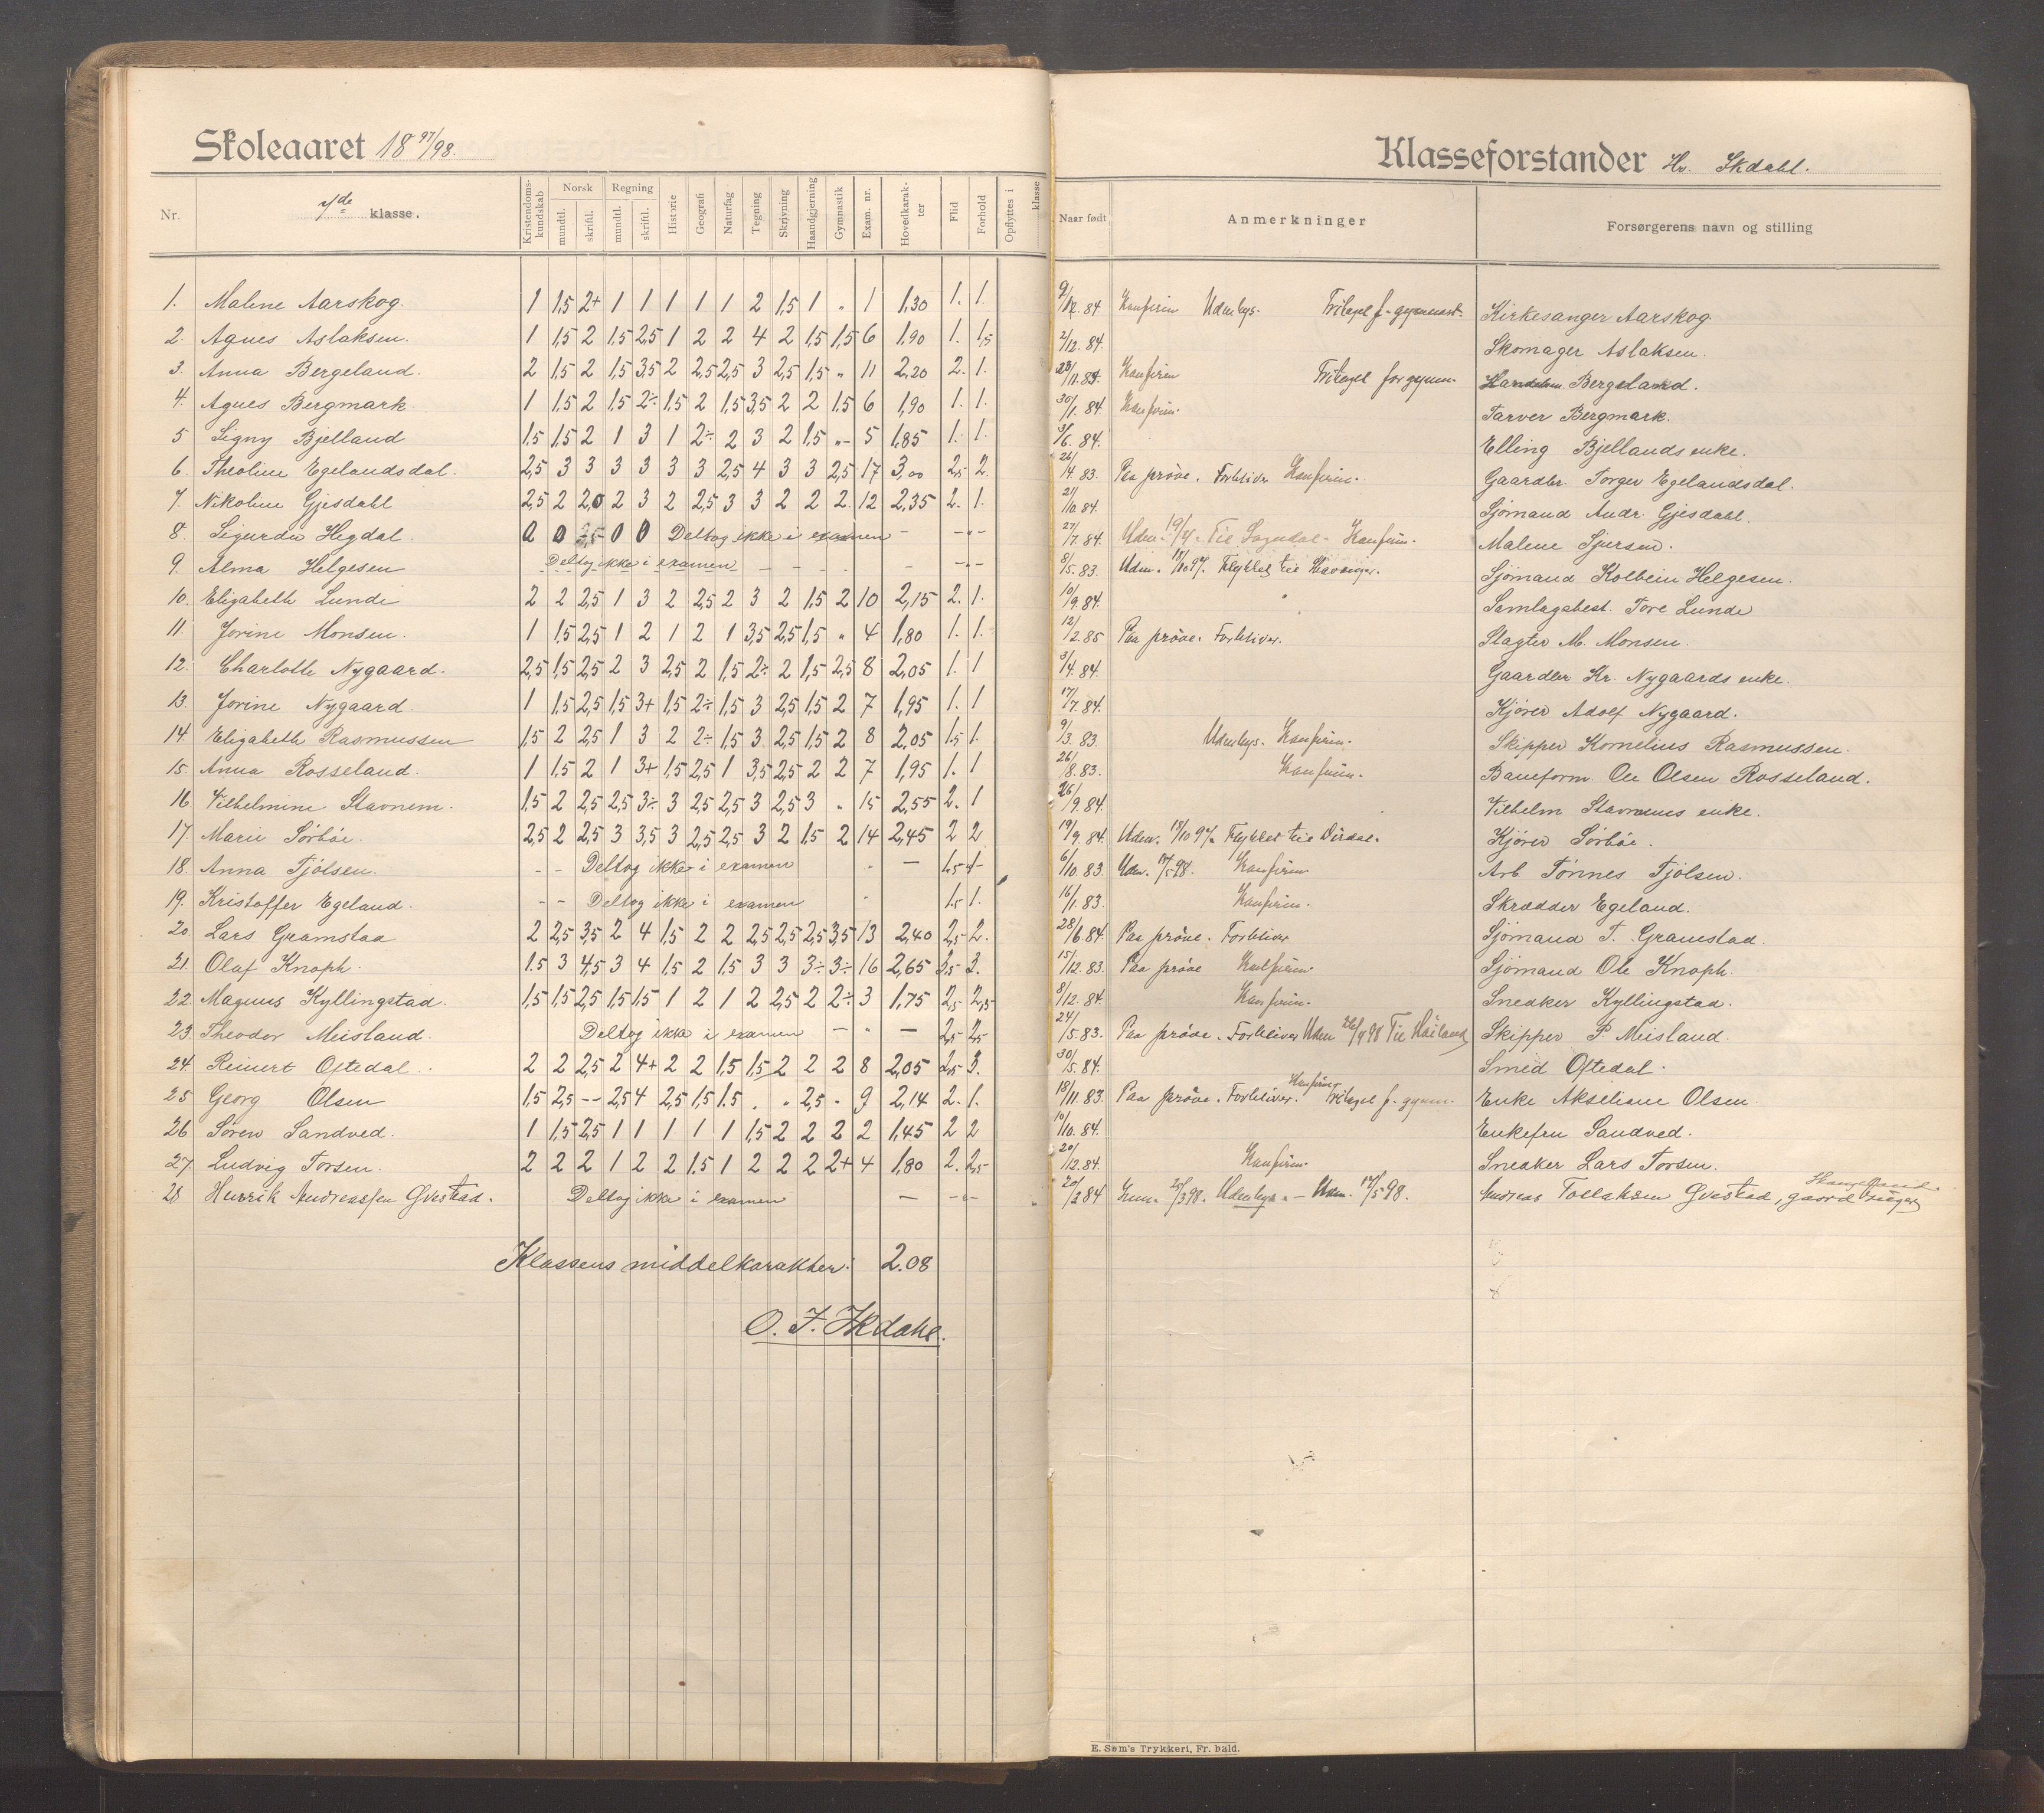 Skoleaaret 18 97/98.
Nr. 7de klasse. Kristendomskundskab Norsk mundtl. skriftl. Regning mundtl. skriftl. Historie Geografi Naturfag Tegning Skrivning Haandgjerning Gymnastik Exam. nr. Hovedkarakter Flid Forhold Opflyttes i klasse
1. Malene Aarskog. 1 1,5 2+ 1 1 1 1 1 2 1,5 1 " 1 1,30 1. 1.
2. Agnes Aslaksen. 1 1,5 2 1,5 2,5 1 2 2 4 2 1,5 1,5 6 1,90 1. 1,5
3. Anna Bergeland. 2 1,5 2 1,5 3,5 2 2,5 2,5 3 2,5 1,5 " 11 2,20 2. 1.
4. Agnes Bergmark. 1 1,5 2 1,5 2÷ 1,5 2 1,5 3,5 2 2 1.5 6 1,90 1. 1.
5 Signy Bjelland 1,5 1,5 2 1 3 1 2÷ 2 3 2 1,5 "- 5 1,85 1. 1.
6. Theoline Egelandsdal. 2,5 3 3 3 3 3 3 2,5 4 3 3 2,5 17 3,00 2,5 2.
7. Nikoline Gjesdahl 2,5 2 2,0 2 3 2 2,5 3 3 2 2 2. 12 2,35 2. 1.
8. Sigurdu Hegdal. 0 0 0 0 Deltog ikke i examen -
9. Alma Helgesen Deltog ikke i examen - - - -
10. Elizabeth Lunde 2 2 2,5 1 3 2 2,5 2 3 2 1,5 2 10 2,15 2. 1.
11. Jorine Monsen. 1 1,5 2,5 1 2 1 2 1 3,5 2,5 1,5 " 4 1,80 1. 1.
12. Charlotte Nygaard. 2,5 1,5 2,5 2 3 2,5 2 1,5 2÷ 2 1,5 2,5 8 2,05 1. 1
13. Jorine Nygaard. 1 1,5 2,5 1,5 3+ 1,5 2÷ 1,5 3 2,5 1,5 2 7 1,95 1. 1
14. Elizabeth Rasmussen 1,5 2 2,5 1 3 2 2÷ 1,5 3 2,5 1,5 2 8 2,05 1.5 1.
15. Anna Rosseland. 1 1,5 2 1 3+ 1,5 2,5 1 3,5 2,5 2 2 7 1,95 1. 1
16. Vilhelmine Stavnem. 1,5 2 2,5 2,5 3÷ 3 2,5 2,5 3 2,5 3 " 15 2,55 2. 1
17. Marie Sørbøe. 2,5 2 2,5 3 3,5 3 2,5 2,5 3 2 1,5 2 14 2,45 2 2
18. Anna Tjølsen. - - Deltog ikke i examen " - 1,5 1
19. Kristoffer Egeland. - - Deltog ikke i examen - 1.5 1.
20. Lars Gramstad 2 2,5 3,5 2 4 1,5 2 2 2,5 2,5 2,5 3,5 13 2,40 2,5 2.
21. Olaf Knoph. 1.5 3 4,5 3 4 1,5 2 1.5 3 3 3÷ 3÷ 16 2,65 3,5 3.
22. Magnus Kyllingstad. 1,5 1,5 2,5 1,5 1,5 1 2 1 2 2,5 2 2÷ 3 1,75 2,5 2,25
23. Theodor Meisland. Deltog ikke i examen - " - 2,5 2,5
24. Reinert Oftedal. 2 2 2,5 2 4+ 2 2 1,5 1,5 2 2 2 8 2,05 2,5 3.
25 Georg Olsen 1,5 2,5 -- 2,5 4 2,5 1,5 1.5 " " 2,5 " 9 2,14 2. 1.
26 Søren Sandved. 1 1,5 2,5 1 1 1 1 1 1,5 2 2 2 2 1,45 2 2
27 Ludvig Torsen. 2 2 2 1 2 2 1,5 1 2 2 2 2+ 4 1,80 2. 2,5
28 Henrik Andreassen Gvestad. Deltog ikke i examen -
Klassens middelkarakter: 2.08
O. J. Skdahl.
Klasseforstander Hr. Skdahl.
Naar født Anmerkninger Forsørgerens navn og stilling
9/12. 84. Konfirm Udenbys. Fritaget f. gymnast. Kirkesanger Aarskog
2/12. 84. Skomager Aslaksen.
23/11. 83. Konfirm Fritaget for gymn. Bergeland.
30/1. 84. Konfirm. Farver Bergmark.
3/6. 84. Elling Bjellands enke.
26/4. 83. Paa prøve. Forbliver Konfirm. Gaardbr. Torger Egelandsdal.
21/10. 84. Sjømand Andr. Gjesdahl.
27/7. 84. Udm. 19/4. Til Sogndal. Konfirm. Malene Sjursen.
8/5. 83. Udm. 18/10 97. Flyttet til Stavanger. Sjømand Kolbein Helgesen.
10/9. 84. Samlagsbest. Tore Lunde
12/2. 85 Paa prøve. Forbliver. Slagter M. Monsen.
3/4. 84. Gaardbr Kr. Nygaards enke.
17/7. 84. Kjører Adolf Nygaard.
9/3. 83. Udenbys. Konfirm. Skipper Kornelius Rasmussen.
26/8. 83. Konfirm. Baneform. Ole Olsen Rosseland.
26/9. 84. Vilhelm Stavnems enke.
19/9. 84. Udm. 18/10 97. Flyttet til Dirdal. Kjører Sørbøe.
6/10. 83. Udm. 17/5 98. Konfirm Arb Tønnes Tjølsen.
16/1. 83. Konfirm. Skrædder Egeland.
28/6. 84. Paa prøve. Forbliver Sjømand T. Gramstad.
15/12. 83. Paa prøve Konfirm. Sjømand Ole Knoph.
8/12. 84. Konfirm. Snedker Kyllingstad.
24/5. 83. Paa prøve. Forbliver Udm 26/4 98 Til Høiland Skipper P. Meisland.
30/5. 84. Smed Oftedal.
18/11. 83. Paa prøve. Forbliver. Konfirm. Fritaget f. gymn. Enke Akseliane Olsen.
10/10. 84. Enkefru Sandved.
20/12. 84. Konfirm. Snedker Lars Torsen.
20/2 84 25/3 98. Udenbys. - Udm. 17/5 98. Andreas Tollaksen Gvestad, gaard
E. Søm's Trykkeri, Fr. hald.